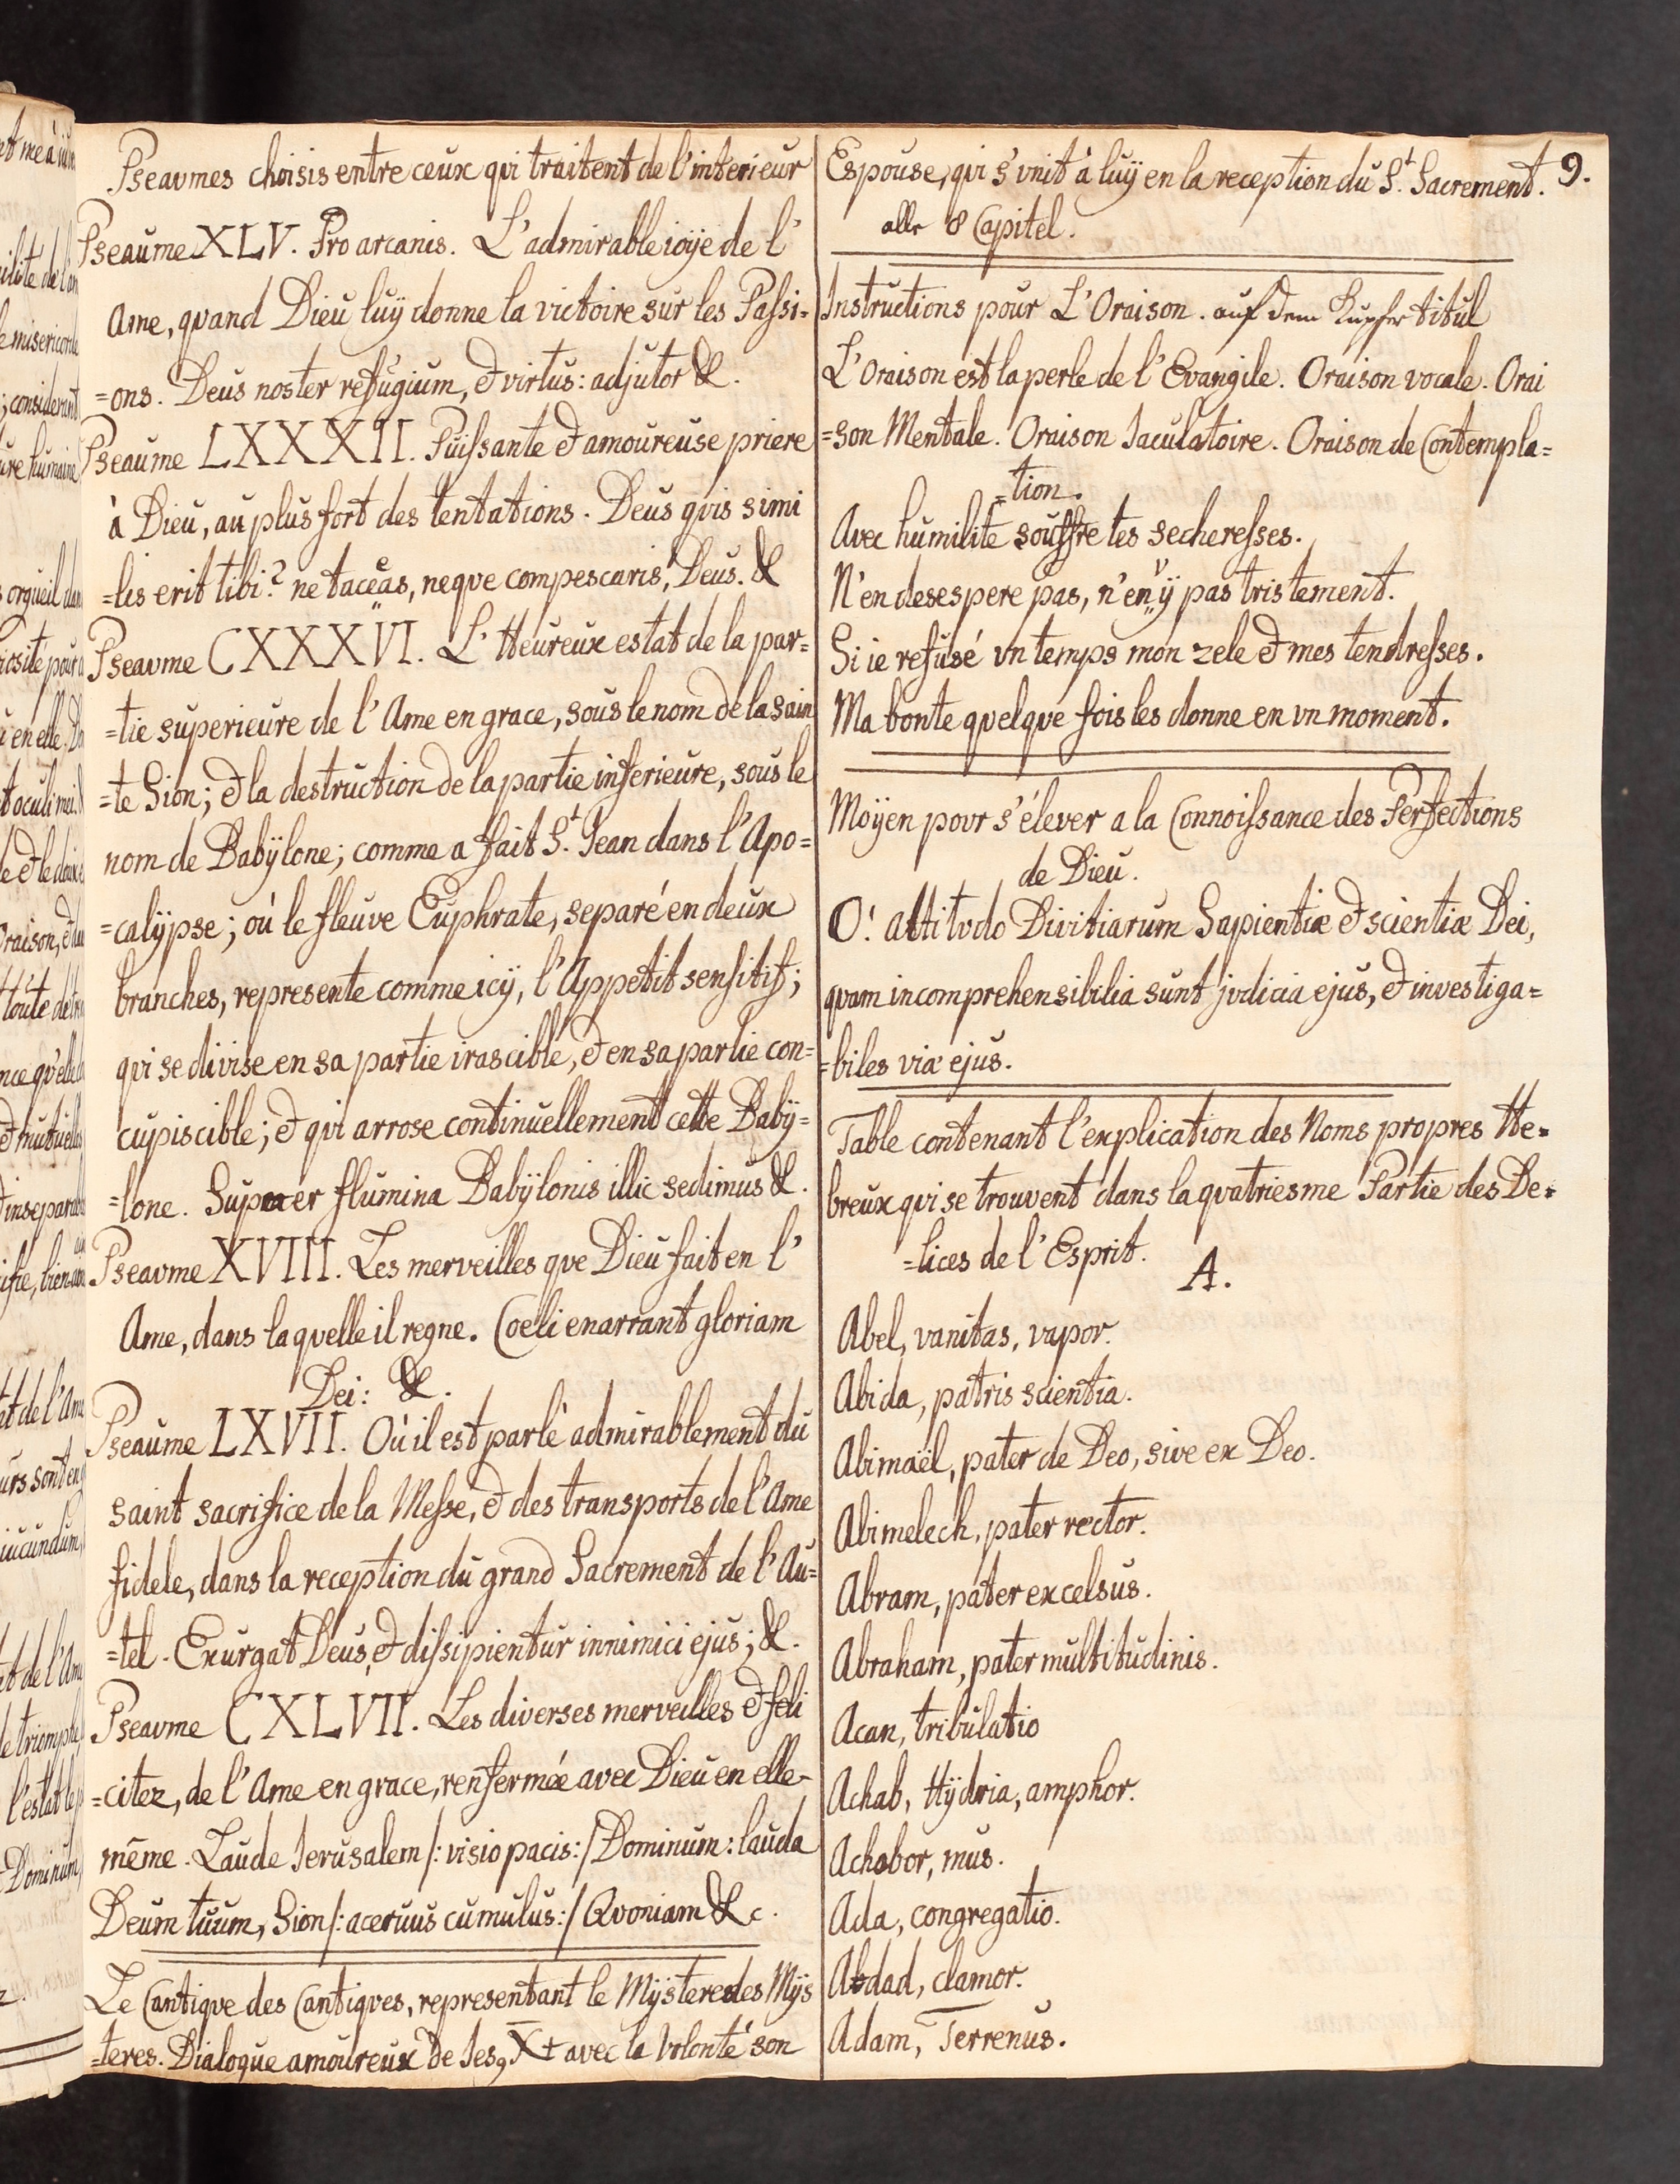 Pseaumes choisis entre ceux qui traitent de l'interieur
Pseaume XLV. Pro arcanis. L'admirable ioÿe de l'
Ame, quand Dieu luÿ donne la victoire sur les Passi=
=ons. Deus noster refugium, et virtus: adjutor &.
Pseaume LXXXII. Puissante et amoureuse priere
à Dieu, au plus fort des tentations. Deus quis simi
=lis erit tibi? ne taceas, neque compescaris, Deus. &
Pseaume CXXXVI. L'Heureux estat de la par=
=tie superieure de l'Ame en grace, sous le nom de la sain
=te Sion; et la destruction de la partie inferieure, sous le
nom de Babÿlone; comme a fait St. Jean dans l'Apo=
=calÿpse; où le fleuve Euphrate, separé en deux
branches, represente comme icÿ, l'Appetit sensitif;
qui se divise en sa partie irascible, et en sa partie con=
cupiscible; et qui arrose continuellement cette Babÿ=
=lone. Super flumina Babÿlonis illic sedimus &.
Pseaume XVIII. Les merveilles que Dieu fait en l'
Ame, dans laquelle il regne. Coeli enarrant gloriam
Dei: &.
Pseaume LXVII. Où il est parlé admirablement du
saint sacrifice de la Messe, et des transports de l'Ame
fidele, dans la reception du grand Sacrement de l'Au=
=tel. Exurgat Deus, et dissipientur innimici ejus; &.
Pseaume CXLVII. Les diverses merveilles et feli
=citez, de l'Ame en grace, renfermée avec Dieu en elle-
même. Laude Ierusalem /: visio pacis:/ Dominum: lauda
Deum tuum, Sion /: aceruus cumulus:/ Quoniam &c.
Le Cantique des Cantiques, representant le Mÿstere des Mÿs
=teres. Dialogue amoureux de Ies9 X+ avec la Volonté son
Espouse, qui s'vnit à luÿ en la reception du St. Sacrement. 9.
alle 8 Capitel.
Instructions pour L'Oraison. auf dem Kupfer titul
L'Oraison est la perle de l'Evangile. Oraison vocale. Orai
=son Mentale. Oraison Iaculatoire. Oraison de Contempla=
=tion.
Avec humilite souffre tes secheresses.
N'en desespere pas, n'en vÿ pas tristement.
Si ie refusé vn temps mon zele et mes tendresses.
Ma bonte quelque fois les donne en vn moment.
Moÿen pour s'élever a la Connoissance des Perfections
de Dieu.
O! altitudo Divitiarum Sapientiæ et scientiæ Dei,
quam incomprehensibilia sunt judicia ejus, et investiga=
=biles viæ ejus.
Table contenant l'explication des Noms propres He=
breux qui se trouvent dans la quatriesme Partie des De=
=lices de l'Esprit.
A.
Abel, vanitas, vapor.
Abida, patris scientia.
Abimaël, pater de Deo, sive ex Deo.
Abimelech, pater rector.
Abram, pater excelsus.
Abraham, pater multitudinis.
Acan, tribulatio
Achab, Hÿdria, amphor.
Achobor, mus.
Ada, congregatio.
Adad, clamor.
Adam, Terrenus.